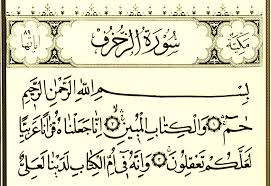 مكية سورة الزخرف آياتها
بِسْمِ اللَّهِ الرَّحْمَٰنِ الرَّحِيمِ
حمٓ ۝١ وَالْكِتَابِ الْمُبِينِ ۝٢ إِنَّا جَعَلْنَاهُ قُرْآنًا عَرَبِيًّا
لَعَلَّكُمْ تَعْقِلُونَ ۝٣ وَإِنَّهُ فِي أُمِّ الْكِتَابِ لَدَيْنَا لَعَلِيٌّ